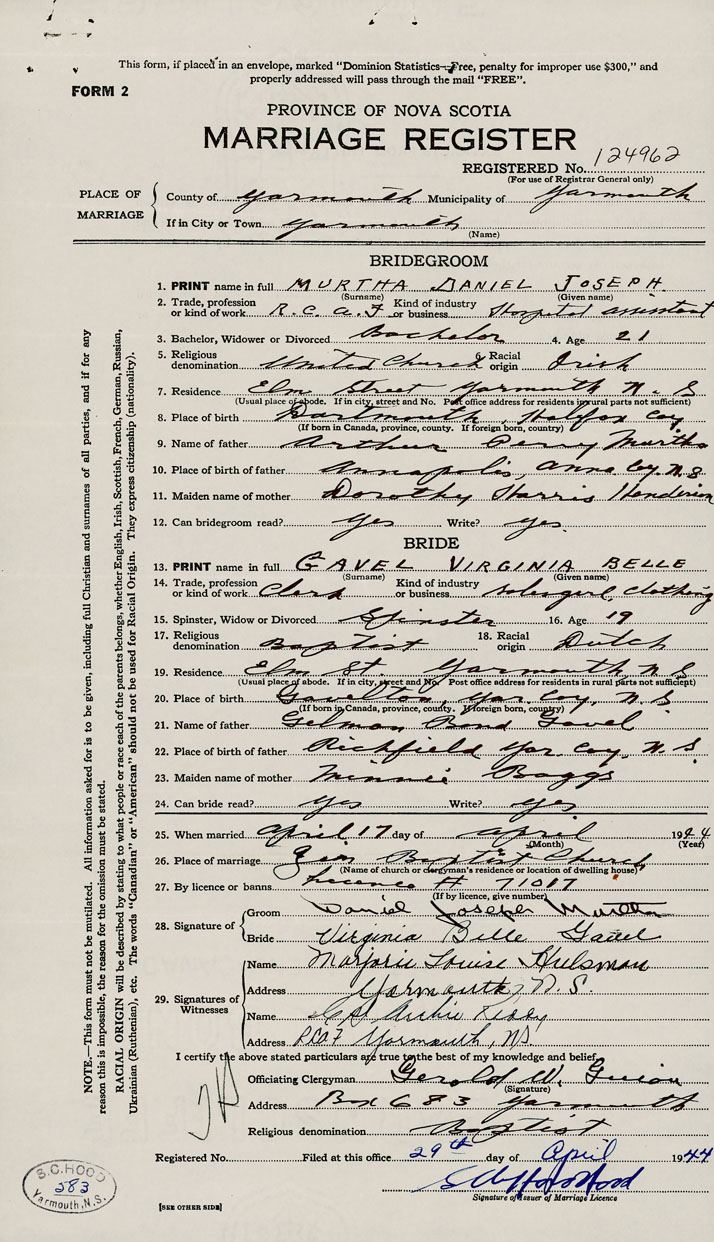 This form, if placed in an envelope, marked "Dominion Statistics—Free, penalty for improper use $300," and
properly addressed will pass through the mail "FREE".
FORM 2
PROVINCE OF NOVA SCOTIA
MARRIAGE REGISTER
REGISTERED No. 124962
(For use of Registrar General only)
PLACE OF MARRIAGE
County of Yarmouth Municipality of Yarmouth
If in City or Town Yarmouth
(Name)
BRIDEGROOM
1. PRINT name in full MURTHA DANIEL JOSEPH
(Surname) (Given name)
2. Trade, profession or kind of work R.C.A.F Kind of industry or business Hospital assistant
3. Bachelor, Widower or Divorced Bachelor 4. Age 21
5. Religious denomination United Church 6. Racial origin Irish
7. Residence Elm Street Yarmouth N.S
(Usual place of abode. If in city, street and No. Post office address for residents in rural parts not sufficient)
8. Place of birth Dartmouth, Halifax Coy
(If born in Canada, province, county. If foreign born, country)
9. Name of father Arthur Percy Murtha
10. Place of birth of father Annapolis, Anna Coy. N.S
11. Maiden name of mother Dorothy Harris Henderson
12. Can bridegroom read? yes Write? yes
BRIDE
13. PRINT name in full GAVEL VIRGINIA BELLE
(Surname) (Given name)
14. Trade, profession or kind of work Clerk Kind of industry or business salesgirl, clothing
15. Spinster, Widow or Divorced Spinster 16. Age 19
17. Religious denomination Baptist 18. Racial origin Dutch
19. Residence Elm St. Yarmouth N S
(Usual place of abode. If in city, street and No. Post office address for residents in rural parts not sufficient)
20. Place of birth Gavelton, Yar. Coy, N.S
(If born in Canada, province, county. If foreign born, country)
21. Name of father Gelman Bond Gavel
22. Place of birth of father Richfield Yar Coy. N.S
23. Maiden name of mother Minnie Baggs
24. Can bride read? yes Write? yes
25. When married April 17 day of April 1944
(Month) (Year)
26. Place of marriage Baptist Church
(Name of church or clergyman's residence or location of dwelling house)
27. By licence or banns Licence # 71017
(If by licence, give number)
28. Signature of
Groom Daniel Joseph Murtha
Bride Virginia Belle Gavel
29. Signatures of Witnesses
Name Marjorie Louise Hulsman
Address Yarmouth, N.S.
Name Archie
Address RCAF Yarmouth, NS.
I certify the above stated particulars are true to the best of my knowledge and belief.
Officiating Clergyman Gerold W. Guion
(Signature)
Address Box 683 Yarmouth
Religious denomination Baptist
Registered No. Filed at this office 29th day of April 1944
Signature of Issuer of Marriage Licence
[SEE OTHER SIDE]
S.C. HOOD
583
Yarmouth, N.S.
NOTE.—This form must not be mutilated. All information asked for is to be given, including full Christian and surnames of all parties, and if for any
reason this is impossible, the reason for the omission must be stated.
RACIAL ORIGIN will be described by stating to what people or race each of the parents belongs, whether English, Irish, Scottish, French, German, Russian,
Ukrainian (Ruthenian), etc. The words "Canadian" or "American" should not be used for Racial Origin. They express citizenship (nationality).